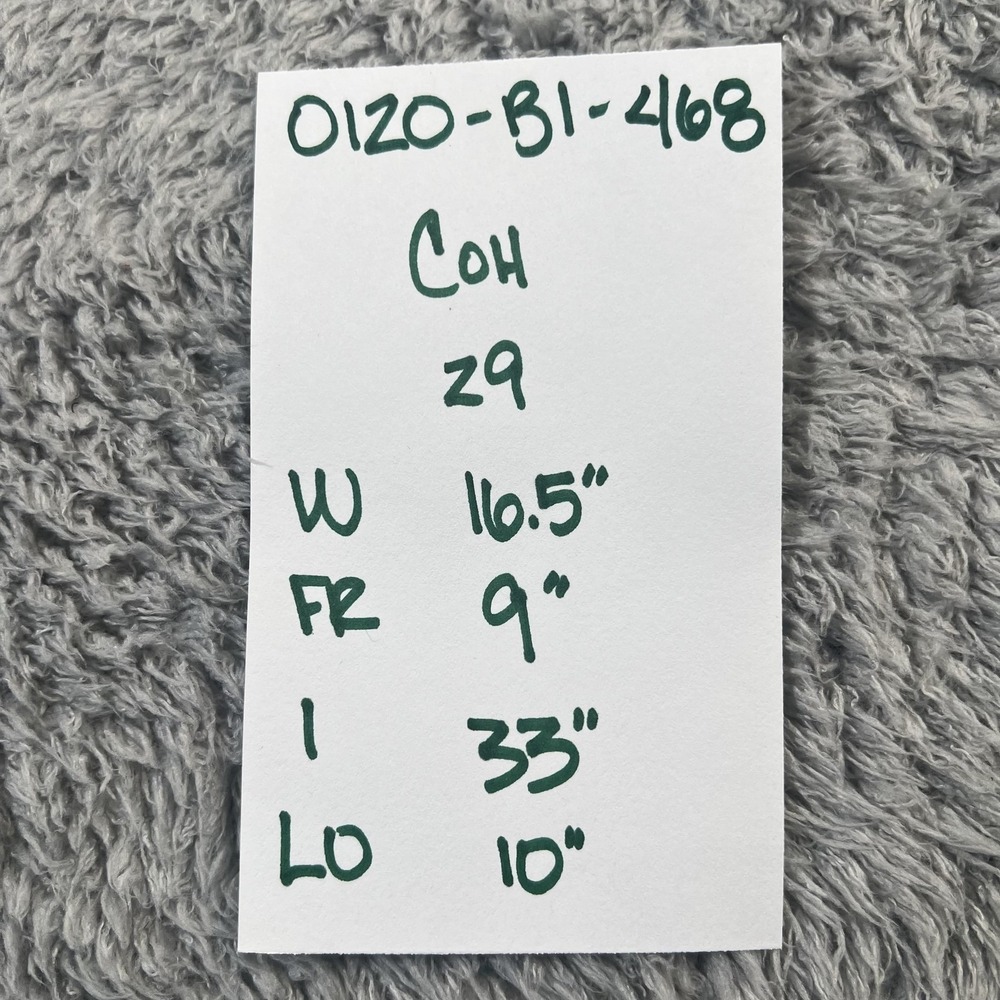 0120-B1-468
COH
29
W 16.5"
FR 9"
I 33"
LO 10"